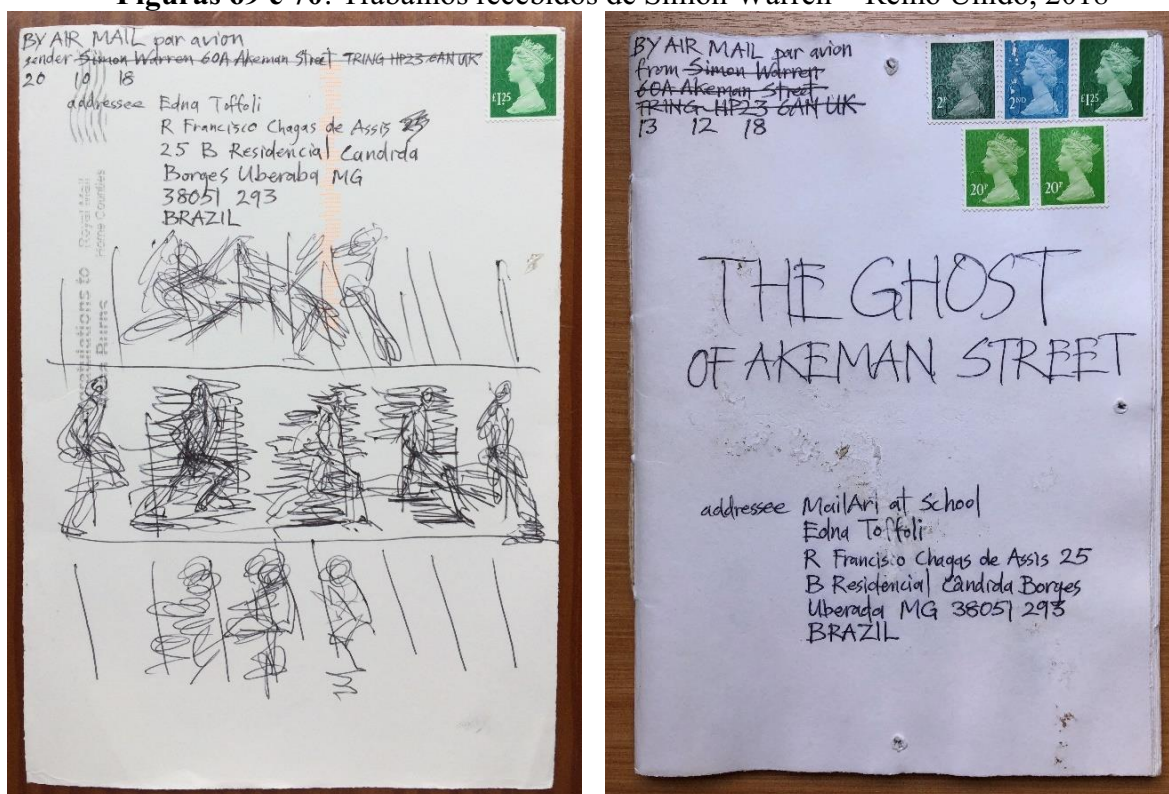 Figuras 69 e 70: Trabalhos recebidos de Simon Warren – Reino Unido, 2018
BY AIR MAIL par avion
sender Simon Warren 60A Akeman Street TRING HP23 6AN UK
20 10 18
addressee Edna Toffoli
R Francisco Chagas de Assis
25 B Residencial Candida
Borges Uberaba MG
38051 293
BRAZIL
£1.25
Royal Mail
Home Counties
BY AIR MAIL par avion
from Simon Warren
60A Akeman Street
TRING HP23 6AN UK
13 12 18
2ND
£1.25
20P
20P
THE GHOST
OF AKEMAN STREET
addressee MailArt at School
Edna Toffoli
R Francisco Chagas de Assis 25
B Residencial Cândida Borges
Uberada MG 38051 293
BRAZIL